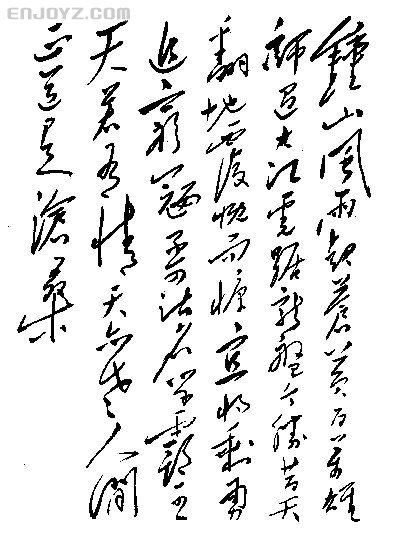 ENJOYZ.COM
鐘山風雨起蒼黃百萬雄
師過大江虎踞龍盤今勝昔天
翻地覆慨而慷宜將剩勇
追窮寇不可沽名學霸王
天若有情天亦老人間
正道是滄桑